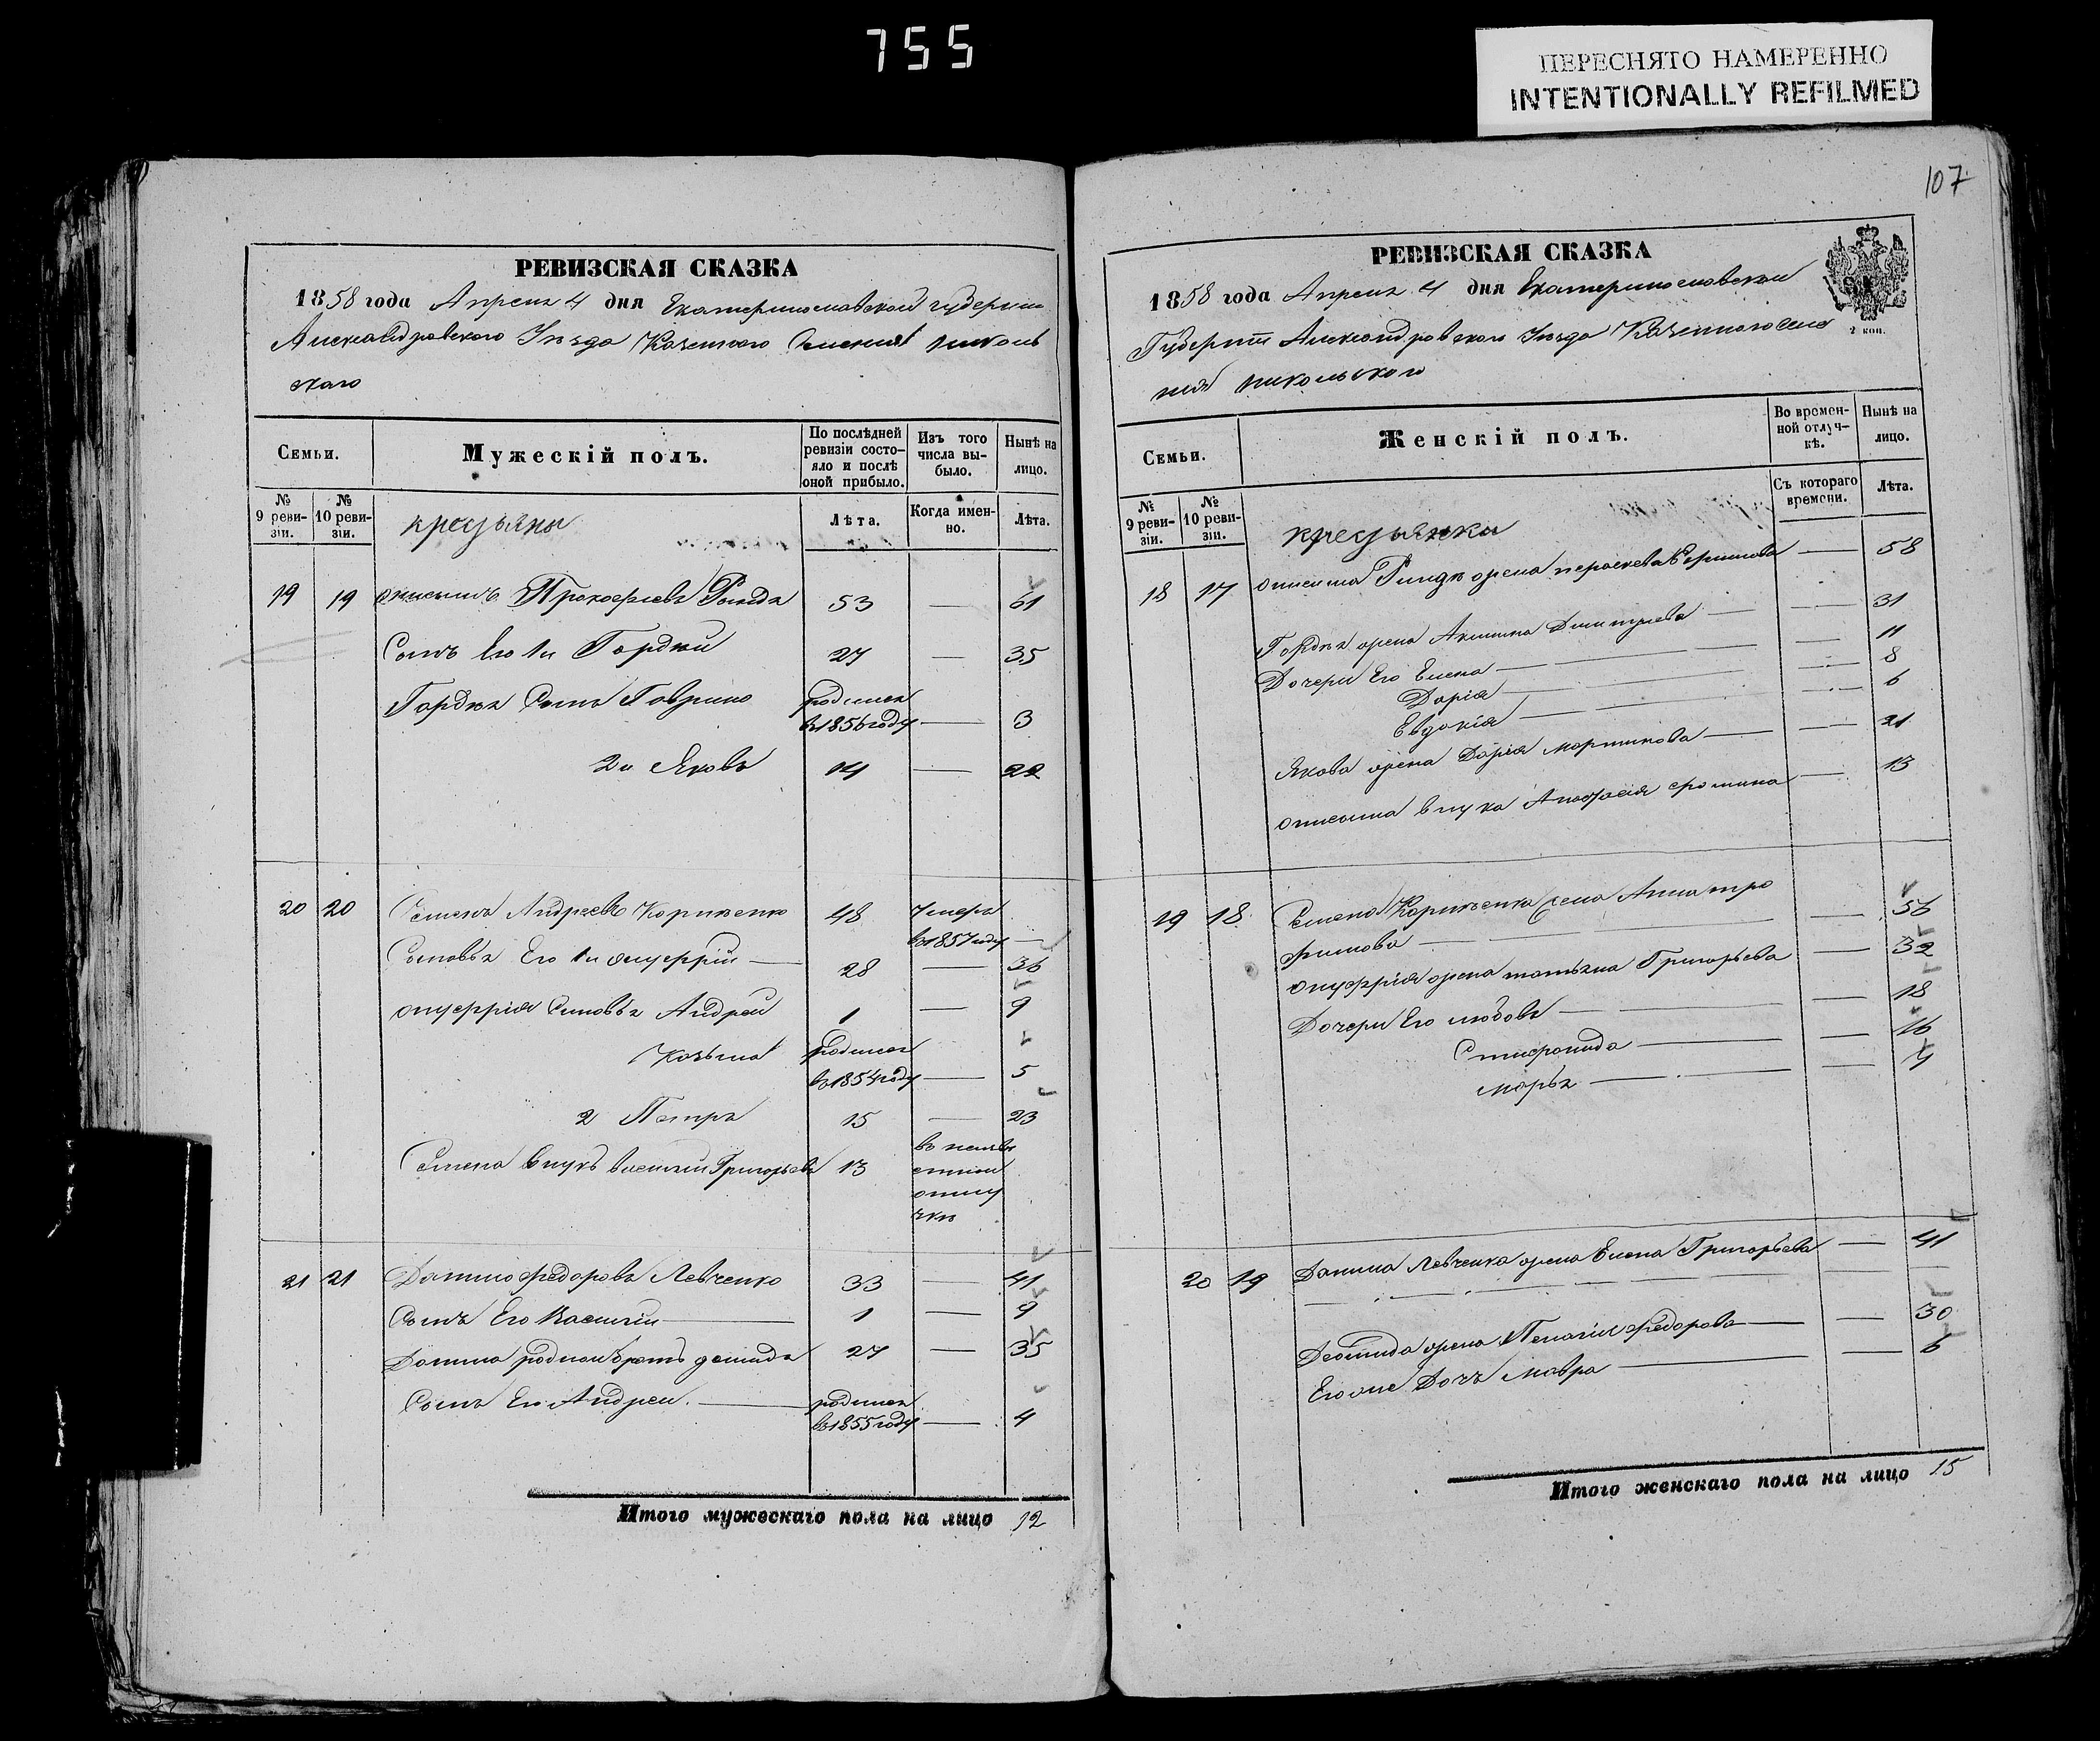 755
ПЕРЕСНЯТО НАМЕРЕННО
INTENTIONALLY REFILMED
РЕВИЗСКАЯ СКАЗКА
1858 года Апреля 4 дня Екатеринославской губернии
Александровского Уезда Казенного Селения николь
скаго
Семьи.
Мужескій полъ.
По послѣдней ревизіи состо-яло и послѣ оной прибыло.
Изъ того числа вы-было.
Нынѣ на лицо.
№ 9 реви-зіи.
№ 10 реви-зіи.
крестьяны
Лѣта.
Когда имен-но.
Лѣта.
19 19 Онисимъ Прокофьевъ 53 — 61
Сынъ Его 1й Гордий 27 — 35
Гордея Сынъ Гаврило родился
в 1856 году — 3
2й Яковъ 14 — 22
20 20 Семенъ Андреевъ Корниенко 48 Умеръ
в 1857 году —
Сыновья Его 1й Онуфрій — 28 — 36
Онуфрія Сыновья Андрей 1 — 9
Козьма родился
в 1854 году — 5
2 Петръ 15 — 23
Семена внукъ василий Григорьевъ 13 в неизве
стной
отлу
чке
21 21 Данило Федоровъ Левченко 33 — 41
Сынъ Его Василий — 1 — 9
Данила родной братъ демидъ 27 — 35
Сынъ Его Андрей. — родился
в 1855 году — 4
Итого мужескаго пола на лицо 12
107
РЕВИЗСКАЯ СКАЗКА
2 коп.
1858 года Апреля 4 дня Екатеринославской
Губернии Александровского Уезда Казенного Селе
ния никольского
Семьи.
Женскій полъ.
Во времен-ной отлуч-кѣ.
Нынѣ на лицо.
№ 9 реви-зіи.
№ 10 реви-зіи.
крестьянки
Съ котораго времени.
Лѣта.
18 17 Онисима жена параскева — 58
Гордея жена Акилина Дмитриева — — 31
Дочери Его Елена — — 11
Дарія — — 8
Евдокія — — 6
Якова жена Дарія мартинова — — 21
Онисима внука Анастасія — 13
19 18 Семена Корниенка жена Анна тро
фимова — — 56
Онуфрія жена татьяна Григорьева — 32
Дочери Его любовь — — 18
Степонида — — 16
марья — — 4
20 19 Данила Левченка жена Елена Григорьева — 41
Демида жена Пелагия Федорова — — 30
Его же Дочь мавра — — 6
Итого женскаго пола на лицо 15